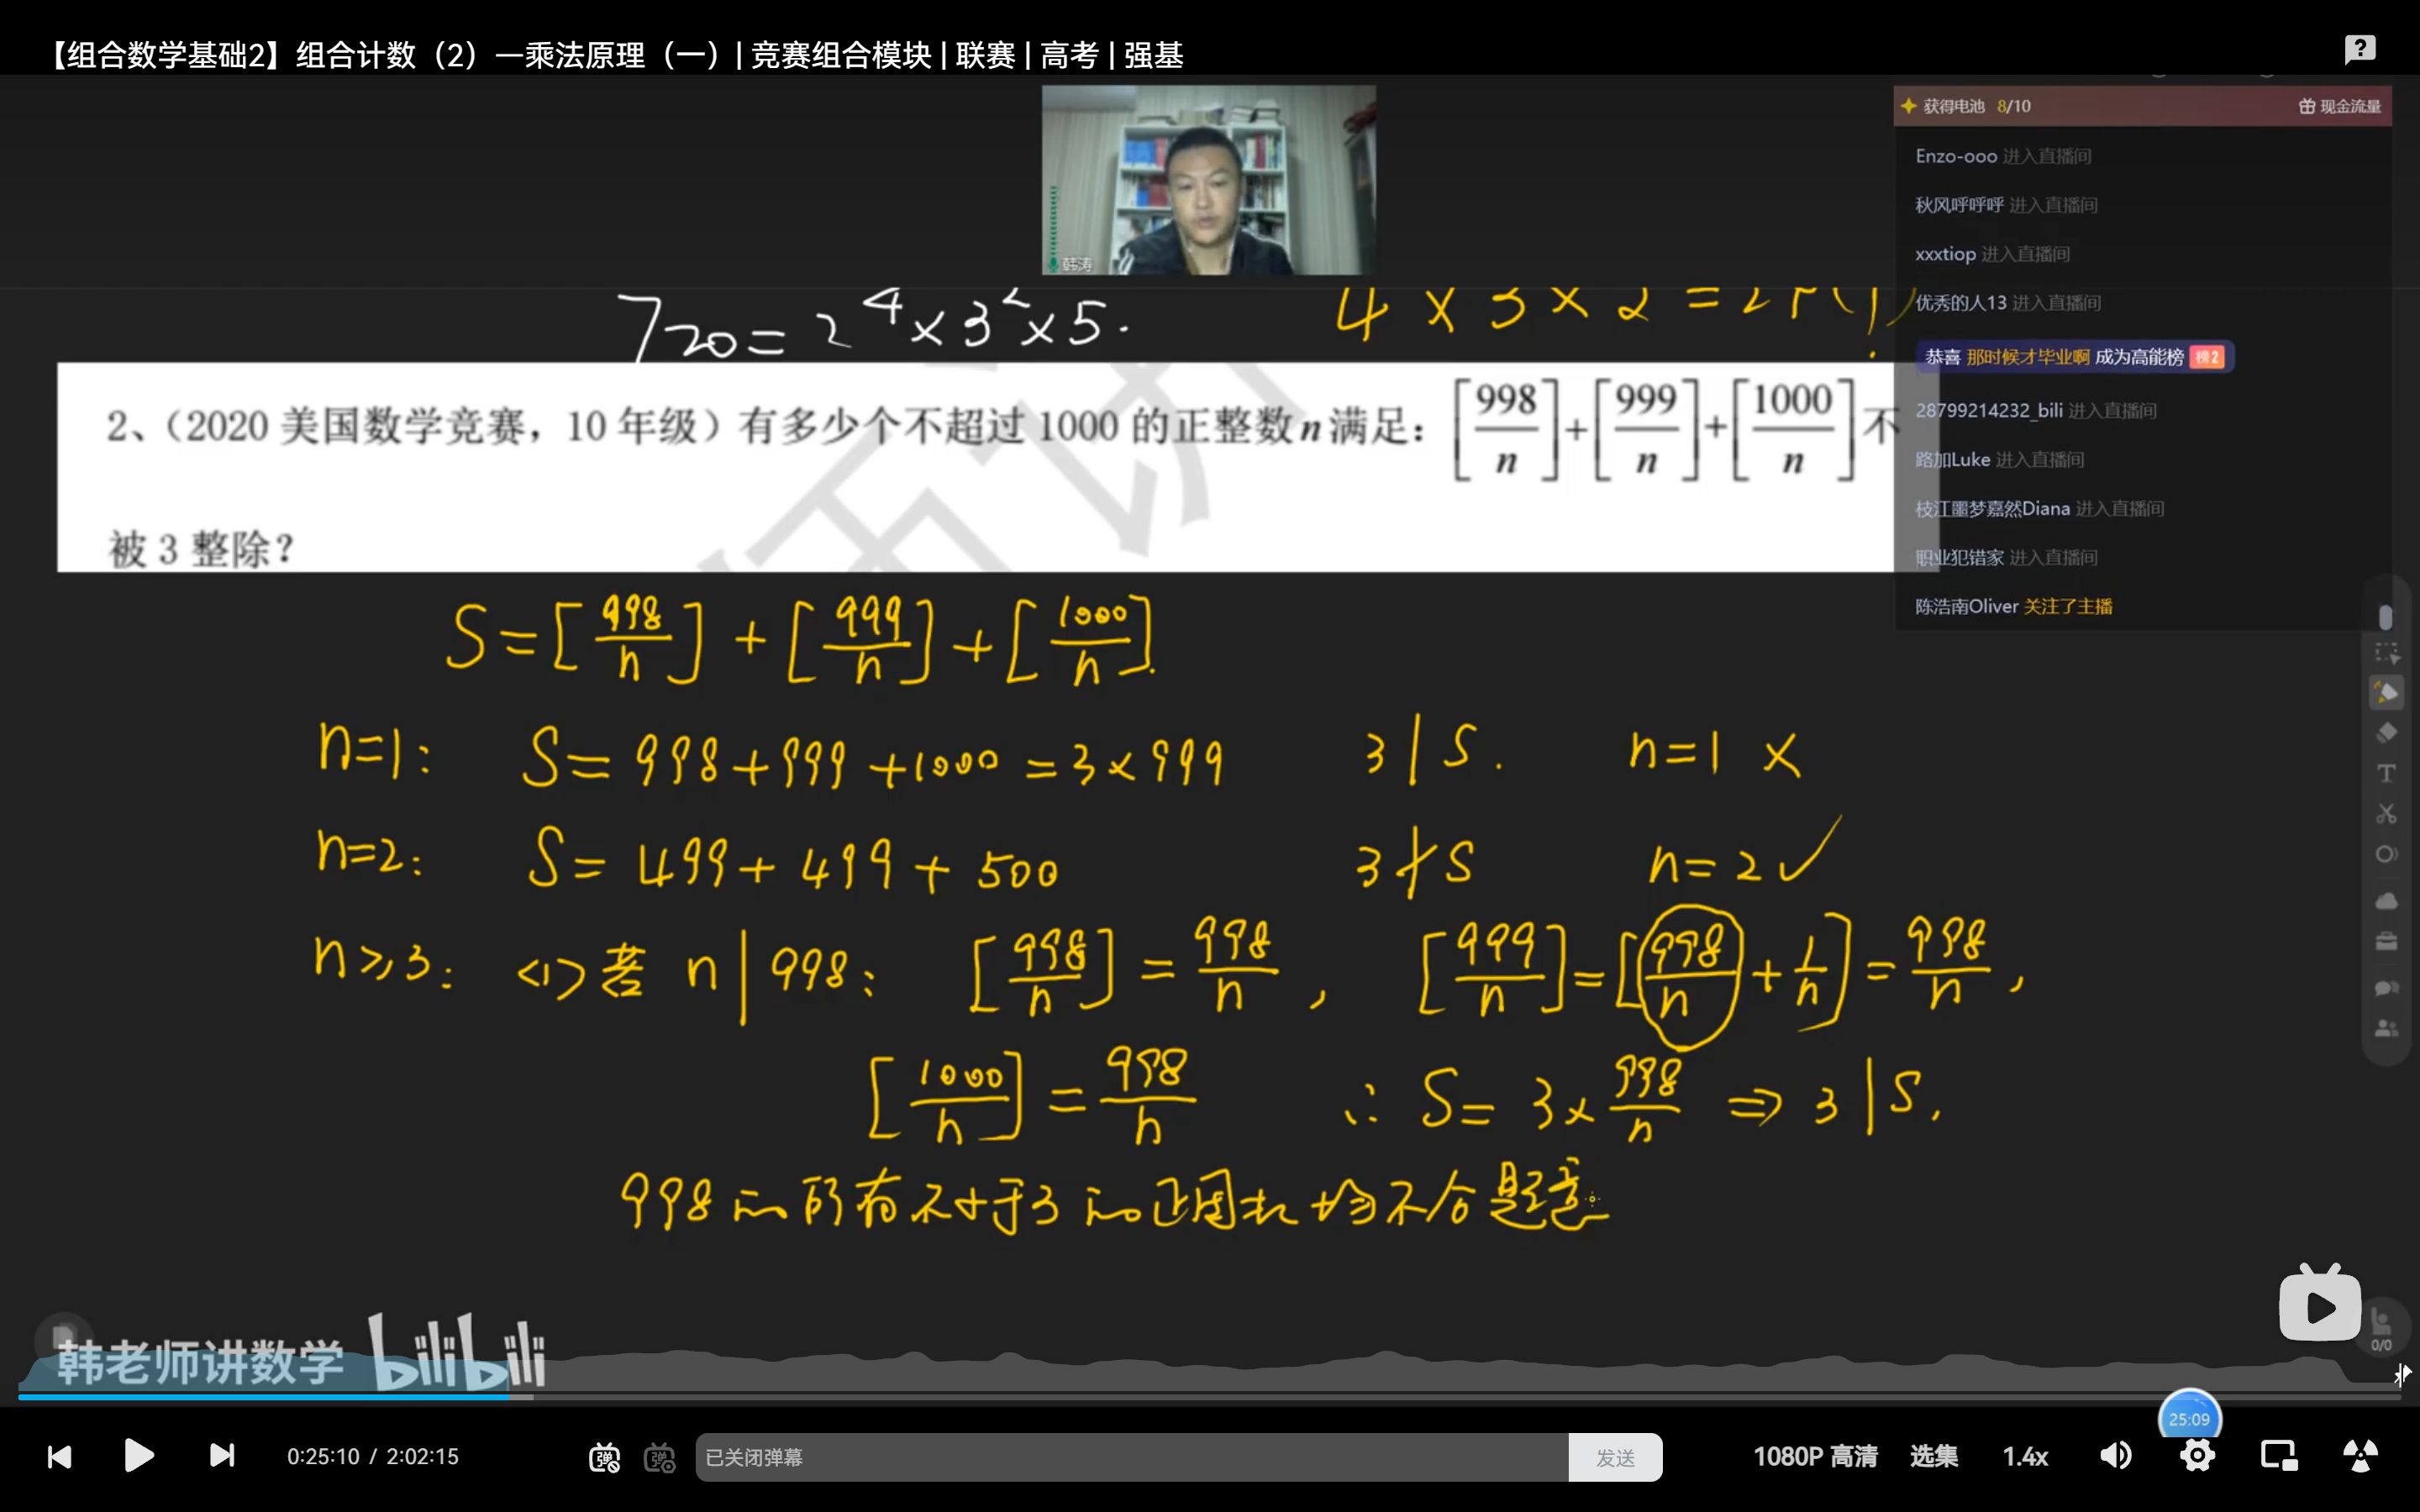 【组合数学基础2】组合计数（2）—乘法原理（一）| 竞赛组合模块 | 联赛 | 高考 | 强基
获得电池 8/10 现金流量
Enzo-ooo 进入直播间
秋风呼呼呼 进入直播间
xxxtiop 进入直播间
优秀的人13 进入直播间
恭喜 那时候才毕业啊 成为高能榜 榜2
28799214232_bili 进入直播间
路加Luke 进入直播间
枝江噩梦嘉然Diana 进入直播间
职业犯错家 进入直播间
陈浩南Oliver 关注了主播
韩涛
720 = 2^4 × 3^2 × 5.
4 × 3 × 2 =
2、（2020 美国数学竞赛，10 年级）有多少个不超过 1000 的正整数 n 满足：[998/n]+[999/n]+[1000/n] 不
被 3 整除？
S = [998/n] + [999/n] + [1000/n].
n=1: S = 998 + 999 + 1000 = 3 × 999 3 | S. n=1 ×
n=2: S = 499 + 499 + 500 3 ∤ S n=2 ✓
n≥3: <1> 若 n | 998: [998/n] = 998/n, [999/n] = [998/n + 1/n] = 998/n,
[1000/n] = 998/n ∴ S = 3 × 998/n ⇒ 3 | S.
998 的所有不小于3的正因数均不合题意
韩老师讲数学 bilibili
0/0
25:09
0:25:10 / 2:02:15 已关闭弹幕 发送 1080P 高清 选集 1.4x